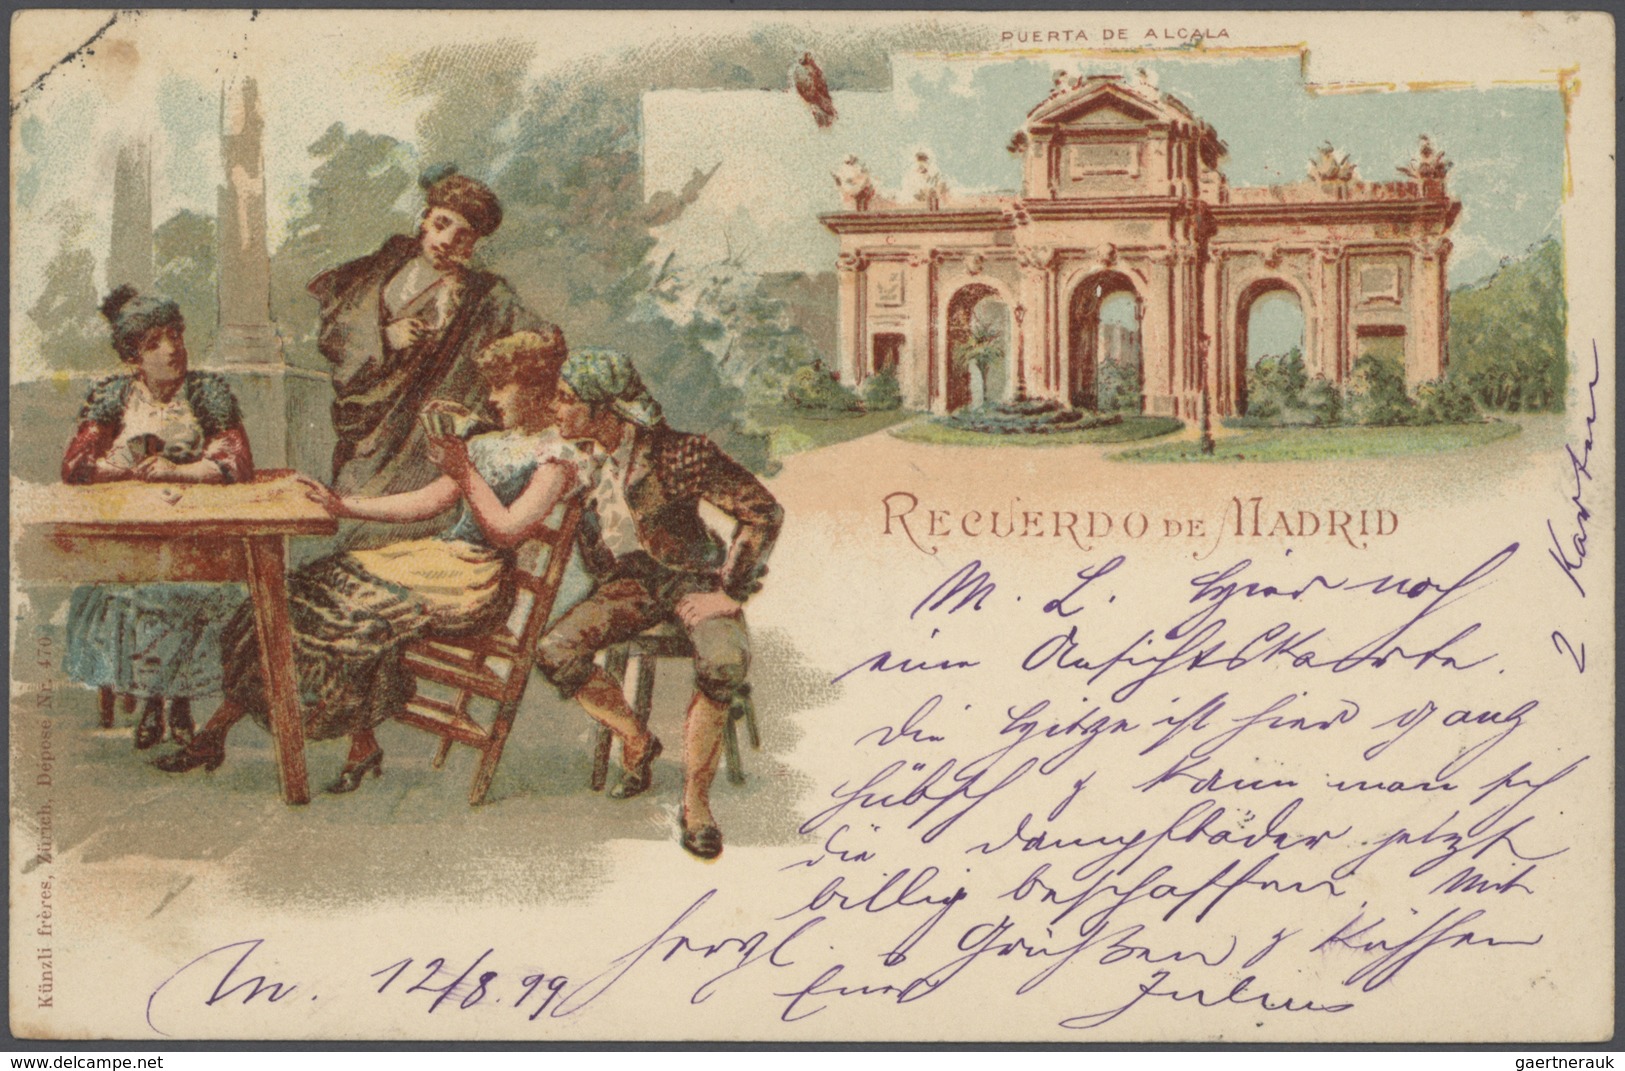 PUERTA DE ALCALA
RECUERDO DE MADRID
M. L. Hier noch
eine Ansichtskarte.
Die Hitze ist hier ganz
hübsch & kann man sich
die Dampfbäder jetzt
billig beschaffen. Mit
herzl. Grüßen & Küssen
Euer Julius
M. 12/8.99
2 Karten
Künzli frères, Zürich. Déposé Nr. 470.
gaertnerauk
www.delcampe.net